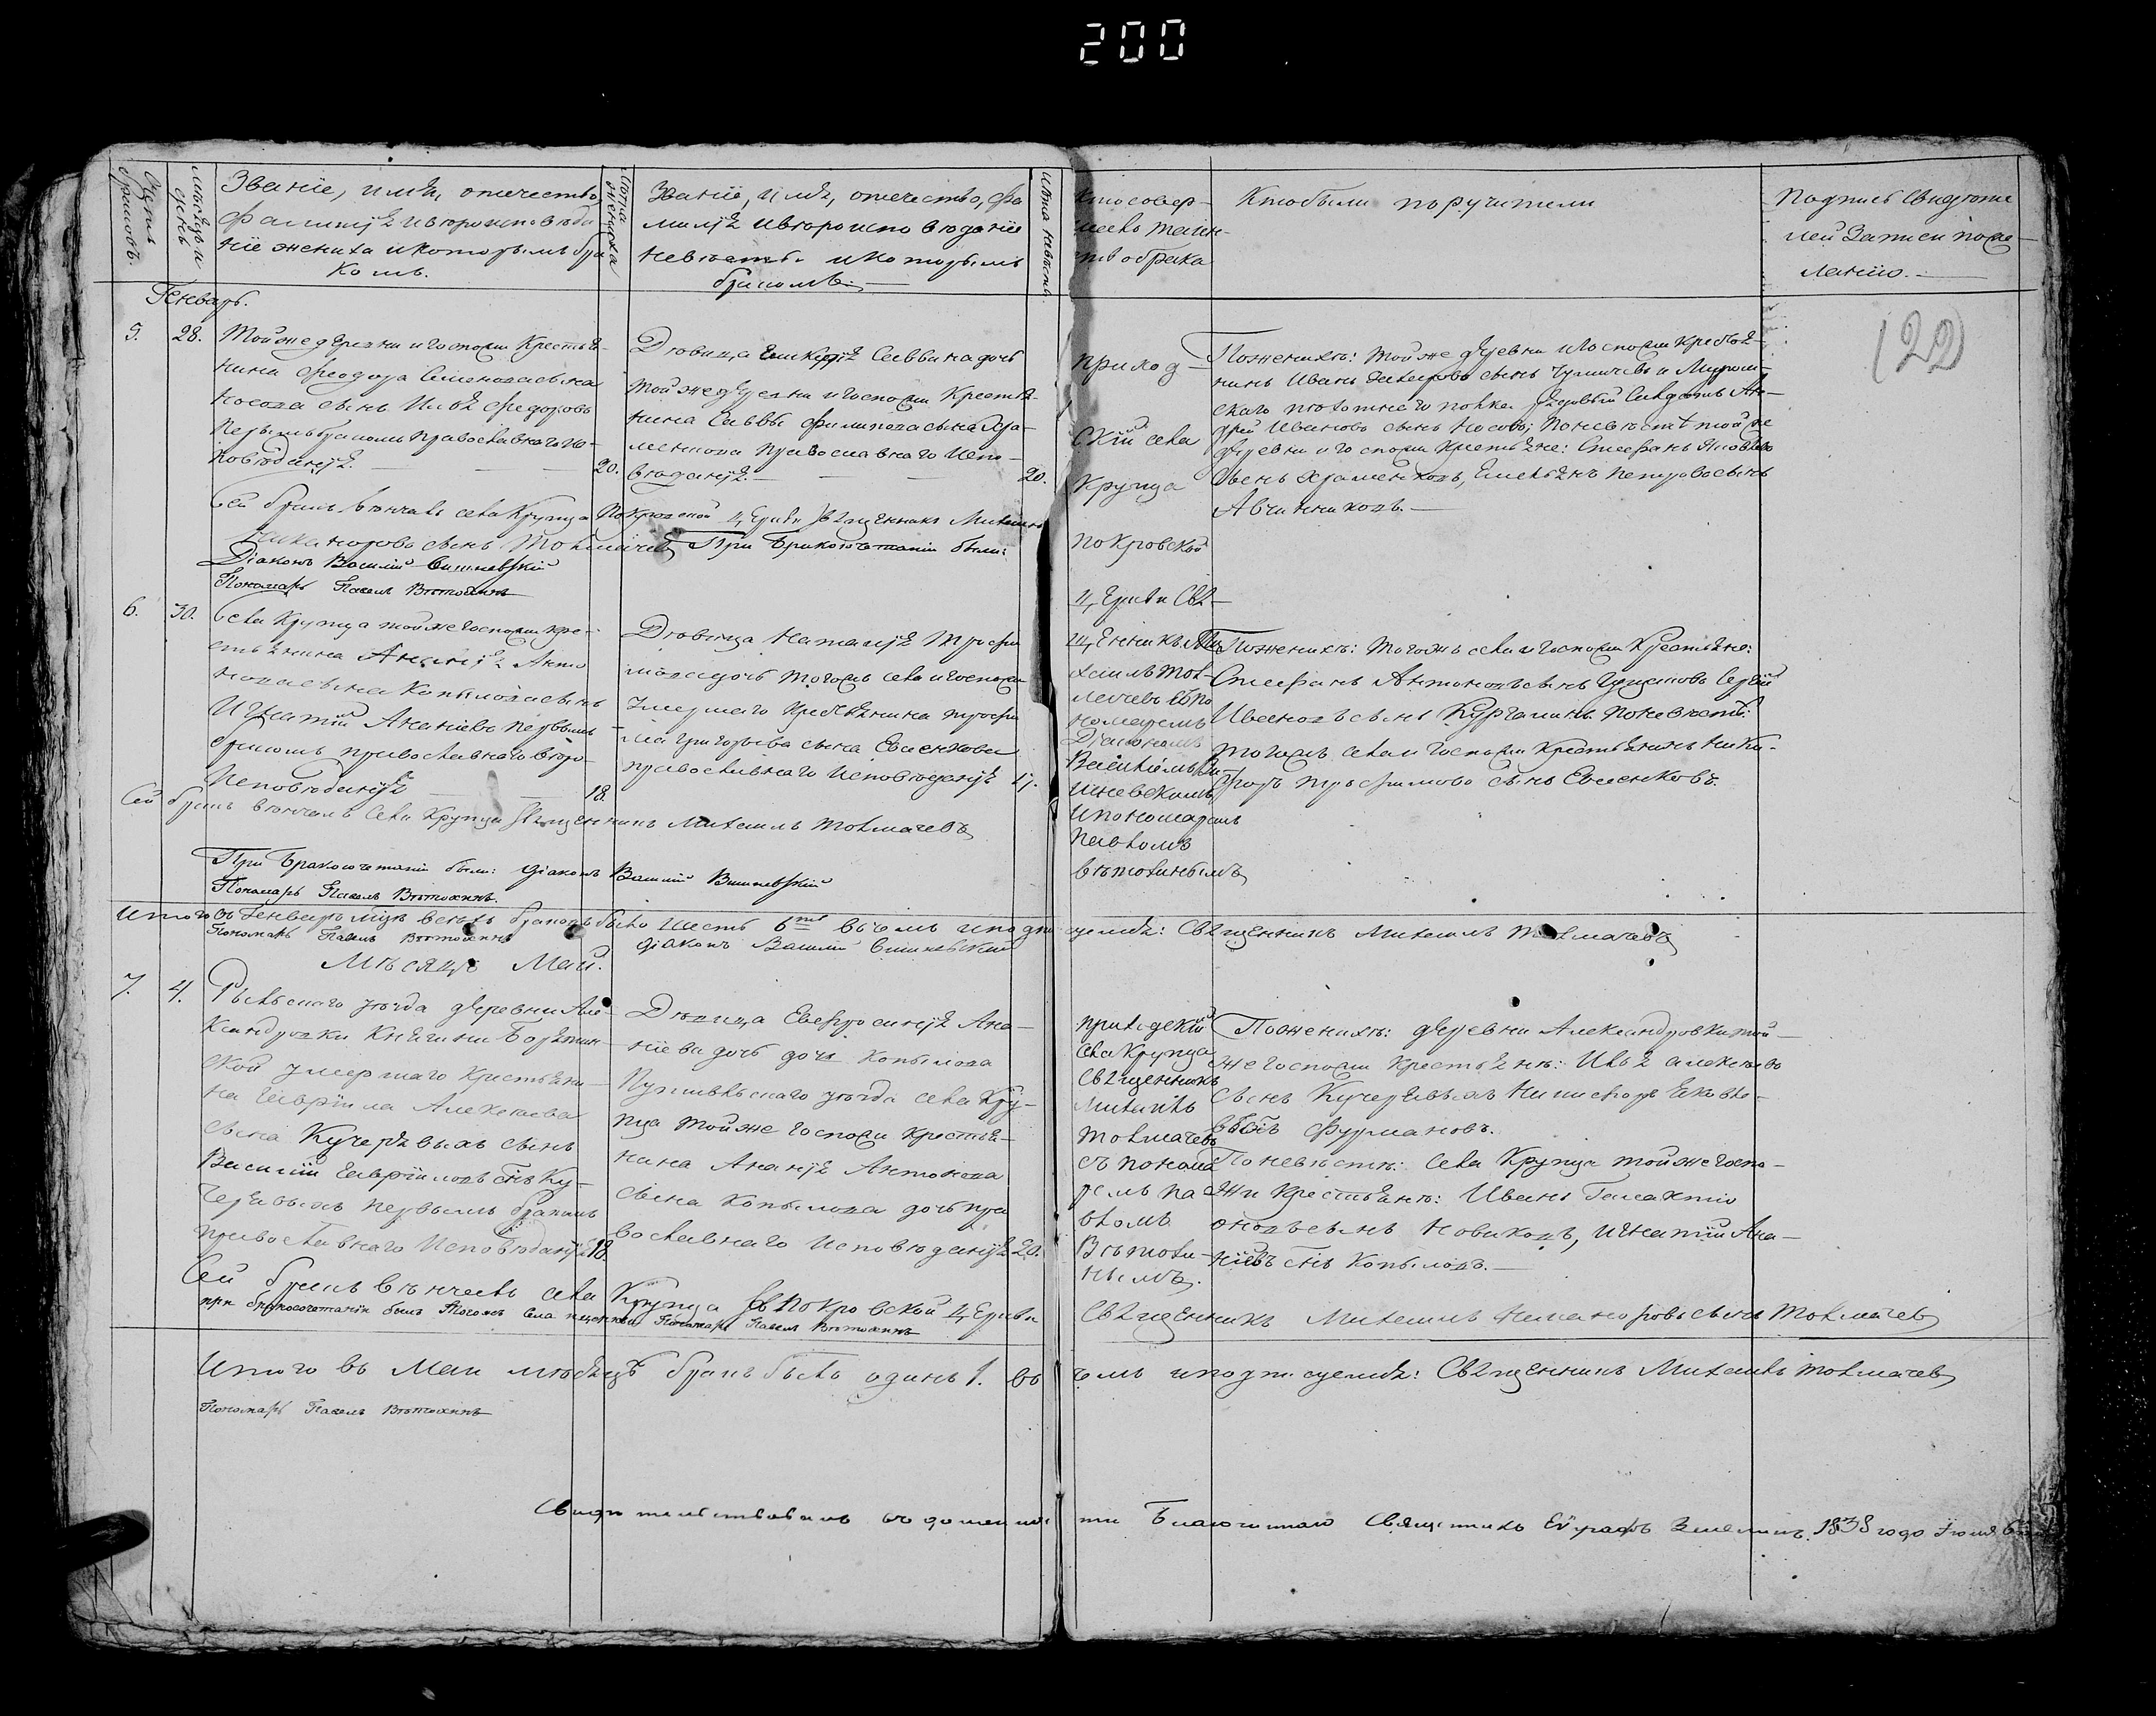 200
Счетъ браковъ.
Мѣсяцъ и день
Званіе, имя, отечество,
фамилія и вѣроисповѣда
ніе жениха и которымъ бра
комъ.
Лѣта жениха
Званіе, имя, отечество, фа
милія и вѣроисповѣданіе
невѣсты и которымъ
бракомъ.
Лѣта невѣсты
Кто совер-
шалъ таин-
ство брака
Кто были поручители
Подпись свидѣте
лей записи по же-
ланію.
122
Генварь.
5. 28.
Той же деревни и госпожи крестья-
нина Феодора Семенова сына
Носова сынъ Илья Федоровъ
первымъ бракомъ православнаго ис-
повѣданія. 20.
Дѣвица Саввина дочь
той же деревни и госпожи крестья-
нина Саввы Филипова сына Хра-
менкова православнаго испо-
вѣданія. 20.
Приход-
скій села
Крупца
Покровской
церкви свя-
По женихѣ: той же деревни и госпожи крестья-
нинъ Иванъ сынъ и Муром-
скаго пѣхотнаго полка рядовый Ан-
дрей Ивановъ сынъ Носовъ; по невѣстѣ той же
деревни и госпожи крестьяне: Стефанъ
сынъ Храменковъ, Емельянъ Петровъ сынъ
Авчинниковъ.
Сей бракъ вѣнчалъ села Крупца Покровской церкви священникъ Михаилъ
Никаноровъ сынъ Толмачевъ При бракосочетаніи были:
Діаконъ Василій Вишневскій
Пономарь Павелъ Вѣтохинъ
6. 30.
Села Крупца той же госпожи кре-
стьянина Ананія Анто
нова сына Копылова сынъ
Игнатій Ананіевъ первымъ
бракомъ православнаго вѣро-
исповѣданія 18.
Дѣвица Наталія Трофи
мова дочь того жъ села и госпожи
умершаго крестьянина Трофи
ма Григорьева сына Евсенкова
православнаго исповѣданія 17.
щенникъ Ми
хаилъ Тол-
мачевъ съ по
номаремъ
Діакономъ
Василіемъ Ви-
шневскимъ
и пономаремъ
Павломъ
Вѣтохинымъ
По женихѣ: того жъ села и госпожи крестьяне:
Стефанъ Антоновъ сынъ Сергѣй
сынъ по невѣстѣ:
того жъ села и госпожи крестьянинъ Ники-
форъ Трофимовъ сынъ Евсенковъ.
Сей бракъ вѣнчалъ села Крупца священникъ Михаилъ Толмачевъ
При бракосочетаніи были: діаконъ Василій Вишневскій
Пономарь Павелъ Вѣтохинъ.
Итого въ Генварѣ м҃цѣ всѣхъ браковъ было шесть 6ть въ чемъ и подписуемся: Священникъ Михаилъ Толмачевъ
Пономарь Павелъ Вѣтохинъ діаконъ Василій Вишневскій
Мѣсяцъ Май.
7. 4.
Рыльскаго уѣзда деревни Але-
ксандровки княгини Барятин-
ской умершаго крестьяни-
на Гавріила Алексѣева
сына Кучерявыхъ сынъ
Василій Гавріиловъ сн҃ъ Ку-
черявыхъ первымъ бракомъ
православнаго исповѣданія 18.
Дѣвица Евфросинія Ана-
ніева дочь дочь Копылова
Путивльскаго уѣзда села Кру-
пца той же госпожи крестья-
нина Ананія Антонова
сына Копылова дочь пра
вославнаго исповѣданія 20.
Приходскій
села Крупца
священникъ
Михаилъ
Толмачевъ
съ понома
ремъ Па
вломъ
Вѣтохи-
нымъ.
По женихѣ: деревни Александровки той-
же госпожи крестьянѣ: Илья Алексѣевъ
сынъ Кучерявыхъ Никифоръ Яковле-
въ сн҃ъ Фурмановъ.
По невѣстѣ: села Крупца той же госпо-
жи крестьянѣ: Иванъ Галактіо
новъ сынъ Новиковъ, Игнатій Ана-
ніевъ сн҃ъ Копыловъ.
Сей бракъ вѣнчалъ села Крупца Покровской церкви Священникъ Михаилъ Никаноровъ сынъ Толмачевъ
при бракосочетаніи былъ того жъ села Пономарь Павелъ Вѣтохинъ
Итого въ Маи мѣсяцѣ бракъ былъ одинъ 1. въ чемъ и подписуемся: Священникъ Михаилъ Толмачевъ
Пономарь Павелъ Вѣтохинъ
Свидѣтельствовалъ въ должности Благочиннаго Священникъ Евграфъ 1838 года Іюля 6